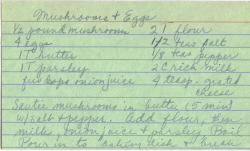 Mushrooms & Eggs
1/2 pound mushrooms 2 T flour
4 eggs 1/2 teas salt
1 T butter 1/8 teas pepper
1 T parsley 2 C rich milk
few drops onion juice 4 teasp. grated
cheese
Sautee mushrooms in butter (5 min)
w/salt & pepper. Add flour, then
milk, onion juice & parsley. Boil.
Pour in to baking dish & break